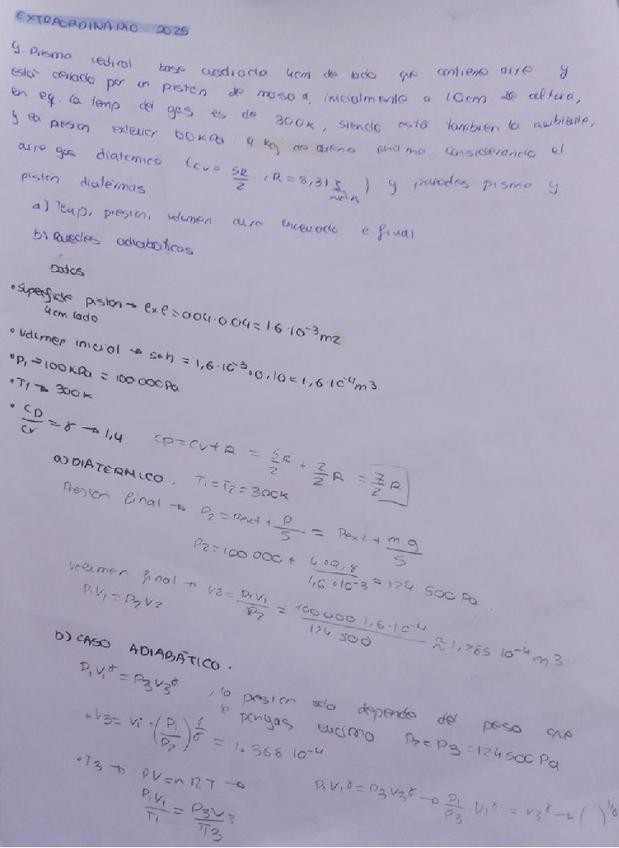 EXTRAORDINARIO 2025
y. Prisma vertical base cuadrada 4cm de lado que contiene aire y
está cerrado por un piston de masa, inicialmente a 10cm de altura,
en eq. la temp del gas es de 300K, siendo esta también la ambiente,
y la presion exterior 100KPa. 4 kg de arena encima. Considerando el
aire gas diatomico (Cv = 5R/2, R = 8,31 J/molK) y paredes prisma y
piston diatermas
a) Temp, presion, volumen aire encerrado e final
b) Paredes adiabáticas
Datos
• Superficie piston → exe = 0.04 · 0.04 = 1.6 · 10⁻³ m2
4cm lado
• Volumen inicial → s·h = 1,6 · 10⁻³ · 0,10 = 1,6 · 10⁻⁴ m³
• P₁ → 100KPa = 100 000 Pa
• T₁ → 300K
• Cp/Cv = γ → 1,4 Cp = Cv + R = 5/2 R + 2/2 R = 7/2 R
a) DIATERMICO. T₁ = T₂ = 300K
Presion final → P₂ = Pext + P/S = Pext + mg/S
P₂ = 100 000 + 4·9,8/1,6·10⁻³ = 124 500 Pa
Volumen final → V2 = P₁V₁/P₂ = 100000 1,6·10⁻⁴/124 500 ≈ 1,285 10⁻⁴ m3
P₁V₁ = P₂V₂
b) CASO ADIABÁTICO.
P₁V₁ᵟ = P₃V₃ᵟ, la presion solo depende del peso que
le pongas encima P₂ = P3 = 124500 Pa
• V3 = Vi · (P₁/P₂)^1/γ = 1.368 10⁻⁴
• T3 → PV = nRT → P₁V₁ᵟ = P₃V₃ᵟ → P₁/P₃ V₁ᵟ = V₃ᵟ → ( )^1/γ
P₁V₁/T₁ = P₃V₃/T3